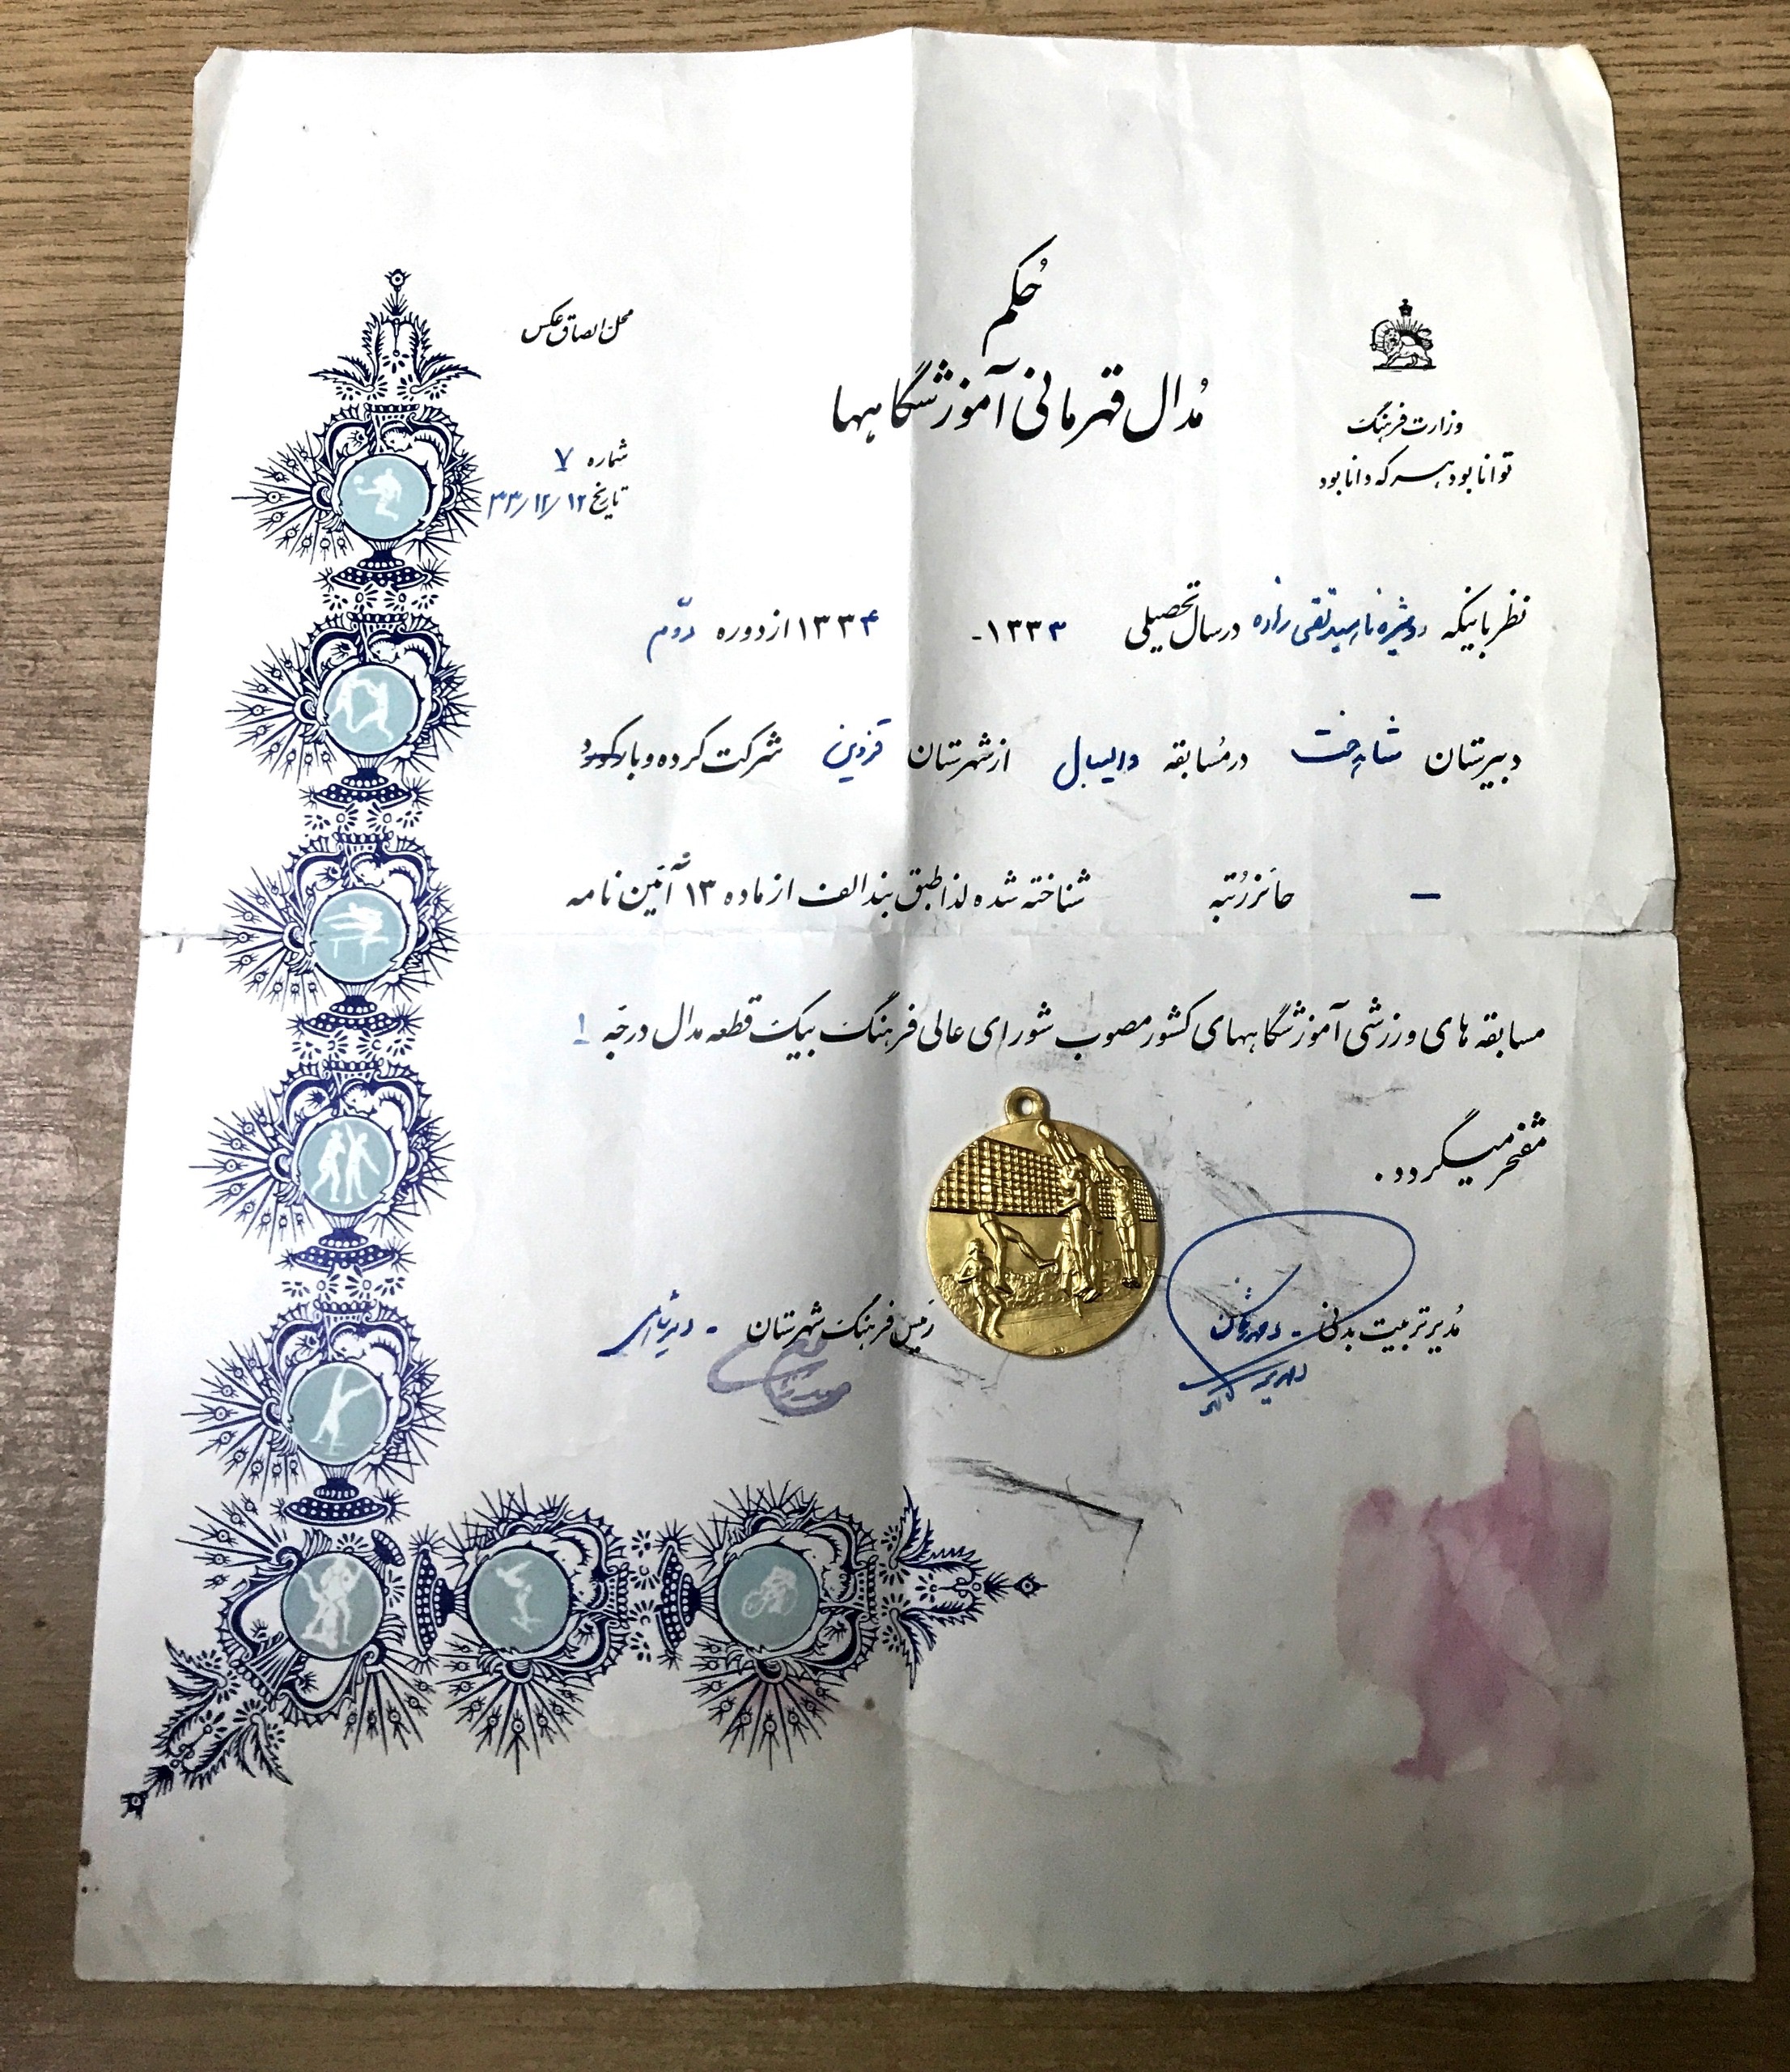 حُکم
مُدال قهرمانی آموزشگاهها
وزارت فرهنگ
توانا بود هر که دانا بود
محل الصاق عکس
شماره ۷
تاریخ ۳۳/۱۲/۱۲
نظر باینکه دوشیزه ناهید تقی زاده در سال تحصیلی ۱۳۳۳- ۱۳۳۴ از دوره دوّم
دبیرستان شاهدخت در مُسابقه والیبال از شهرستان قزوین شرکت کرده و با رکورد
– حائز رُتبه شناخته شده لذا طبق بند الف از ماده ۱۳ آئین نامه
مسابقه های ورزشی آموزشگاههای کشور مصوب شورای عالی فرهنگ بیک قطعه مدال درجه ۱
مفتخر میگردد.
مُدیر تربیت بدنی -
رئیس فرهنگ شهرستان -